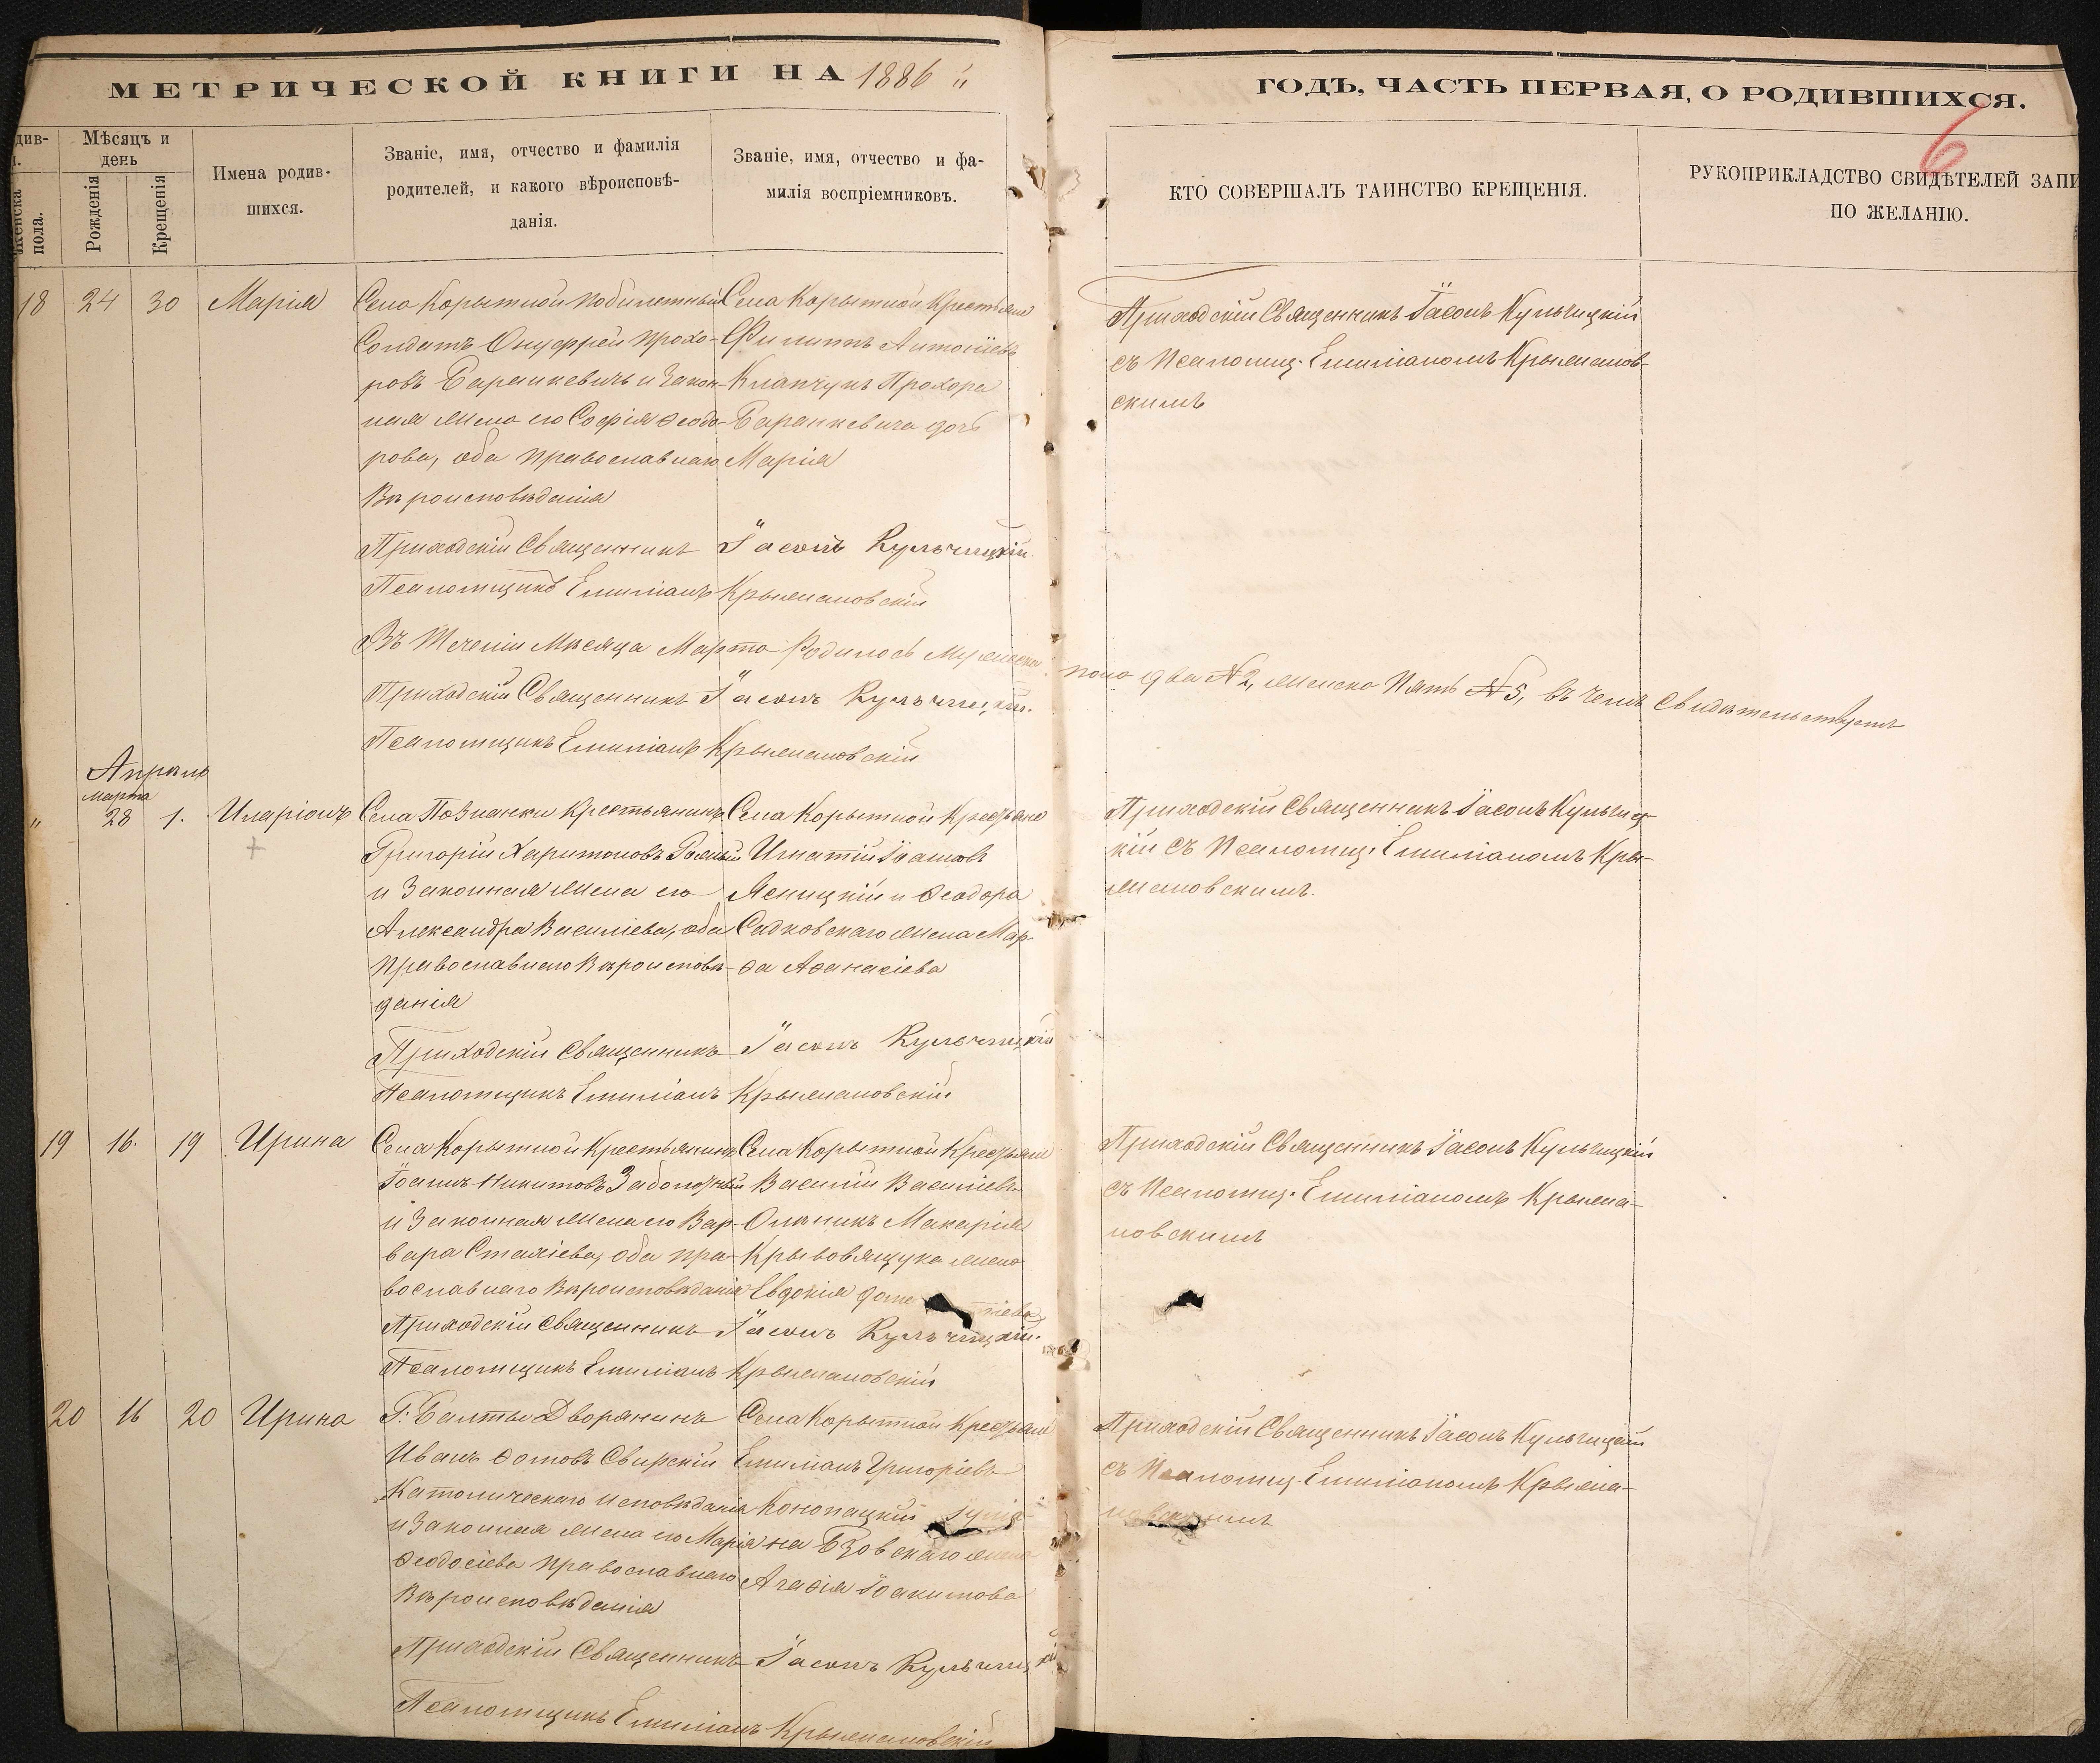 МЕТРИЧЕСКОЙ КНИГИ НА 1886 "
див-
Мѣсяцъ и
день
женска
пола.
Рожденія
Крещенія
Имена родив-
шихся.
Званіе, имя, отчество и фамилія
родителей, и какого вѣроисповѣ-
данія.
Званіе, имя, отчество и фа-
милія воспріемниковъ.
18 24 30 Марія
Села Корытной по билетный
Солдатъ Онуфрей Прохо-
ровъ Баранкевичъ и закон-
ная жена его Софія Ѳеодо-
рова, оба православнаго
Вѣроисповѣданія
Села Корытной Крестьяне
Филиппъ Антоніевъ
Клапчукъ Прохора
Баранкевича дочь
Марія
Приходскій Священникъ Іасонъ Кульчицкій.
Псаломщикъ Емиліанъ Крыжановскій
Въ теченіи Мѣсяца Марта родилось Мужеска
Приходскій Священникъ Іасонъ Кульчицкій.
Псаломщикъ Емиліанъ Крыжановскій
Апрѣль
марта
" 28 1. Иларіонъ
Села Познанки Крестьянинъ
Григорій Харитоновъ
и Законная жена его
Александра Василіева, оба
православнаго Вѣроисповѣ-
данія
Села Корытной Крестьяне
Игнатій Іоанновъ
Ясницкій и Ѳеодора
Садковскаго жена Мар-
ѳа Аѳанасіева
Приходскій Священникъ Іасонъ Кульчицкій
Псаломщикъ Емиліанъ Крыжановскій
19 16. 19 Ирина
Села Корытной Крестьянинъ
Іоаннъ Никитовъ Заболотный
и Законная жена его Вар-
вара Стахіева, оба пра-
вославнаго Вѣроисповѣданія
Села Корытной Крестьяне
Василій Василіевъ
Олѣникъ Макарія
Крывовящука жена
Евдокія
Приходскій Священникъ Іасонъ Кульчицкій.
Псаломщикъ Емиліанъ Крыжановскій
20 16 20 Ирина
Г. Балты Дворянинъ
Иванъ Ѳомовъ Свирскій
Католическаго исповѣданія
и Законная жена его Марія
Ѳеодосіева православнаго
Вѣроисповѣданія
Села Корытной Крестьяне
Емиліанъ Григоріевъ
Конопацкій
на Бзовскаго жена
Агаѳія Іоакимова
Приходскій Священникъ Іасонъ Кульчицкій
Псаломщикъ Емиліанъ Крыжановскій
ГОДЪ, ЧАСТЬ ПЕРВАЯ, О РОДИВШИХСЯ.
6
КТО СОВЕРШАЛЪ ТАИНСТВО КРЕЩЕНІЯ.
РУКОПРИКЛАДСТВО СВИДѢТЕЛЕЙ ЗАПИ
ПО ЖЕЛАНІЮ.
Приходскій Священникъ Іасонъ Кульчицкій
съ Псаломщ. Емиліаномъ Крыжанов-
скимъ
пола два №2, женска Пять №5, въ чемъ свидѣтельствуемъ
Приходскій Священникъ Іасонъ Кульчиц-
кій съ Псаломщ. Емиліаномъ Кры-
жановскимъ.
Приходскій Священникъ Іасонъ Кульчицкій
съ Псаломщ. Емиліаномъ Крыжа-
новскимъ
Приходскій Священникъ Іасонъ Кульчицкій
съ Псаломщ. Емиліаномъ Крыжа-
новскимъ